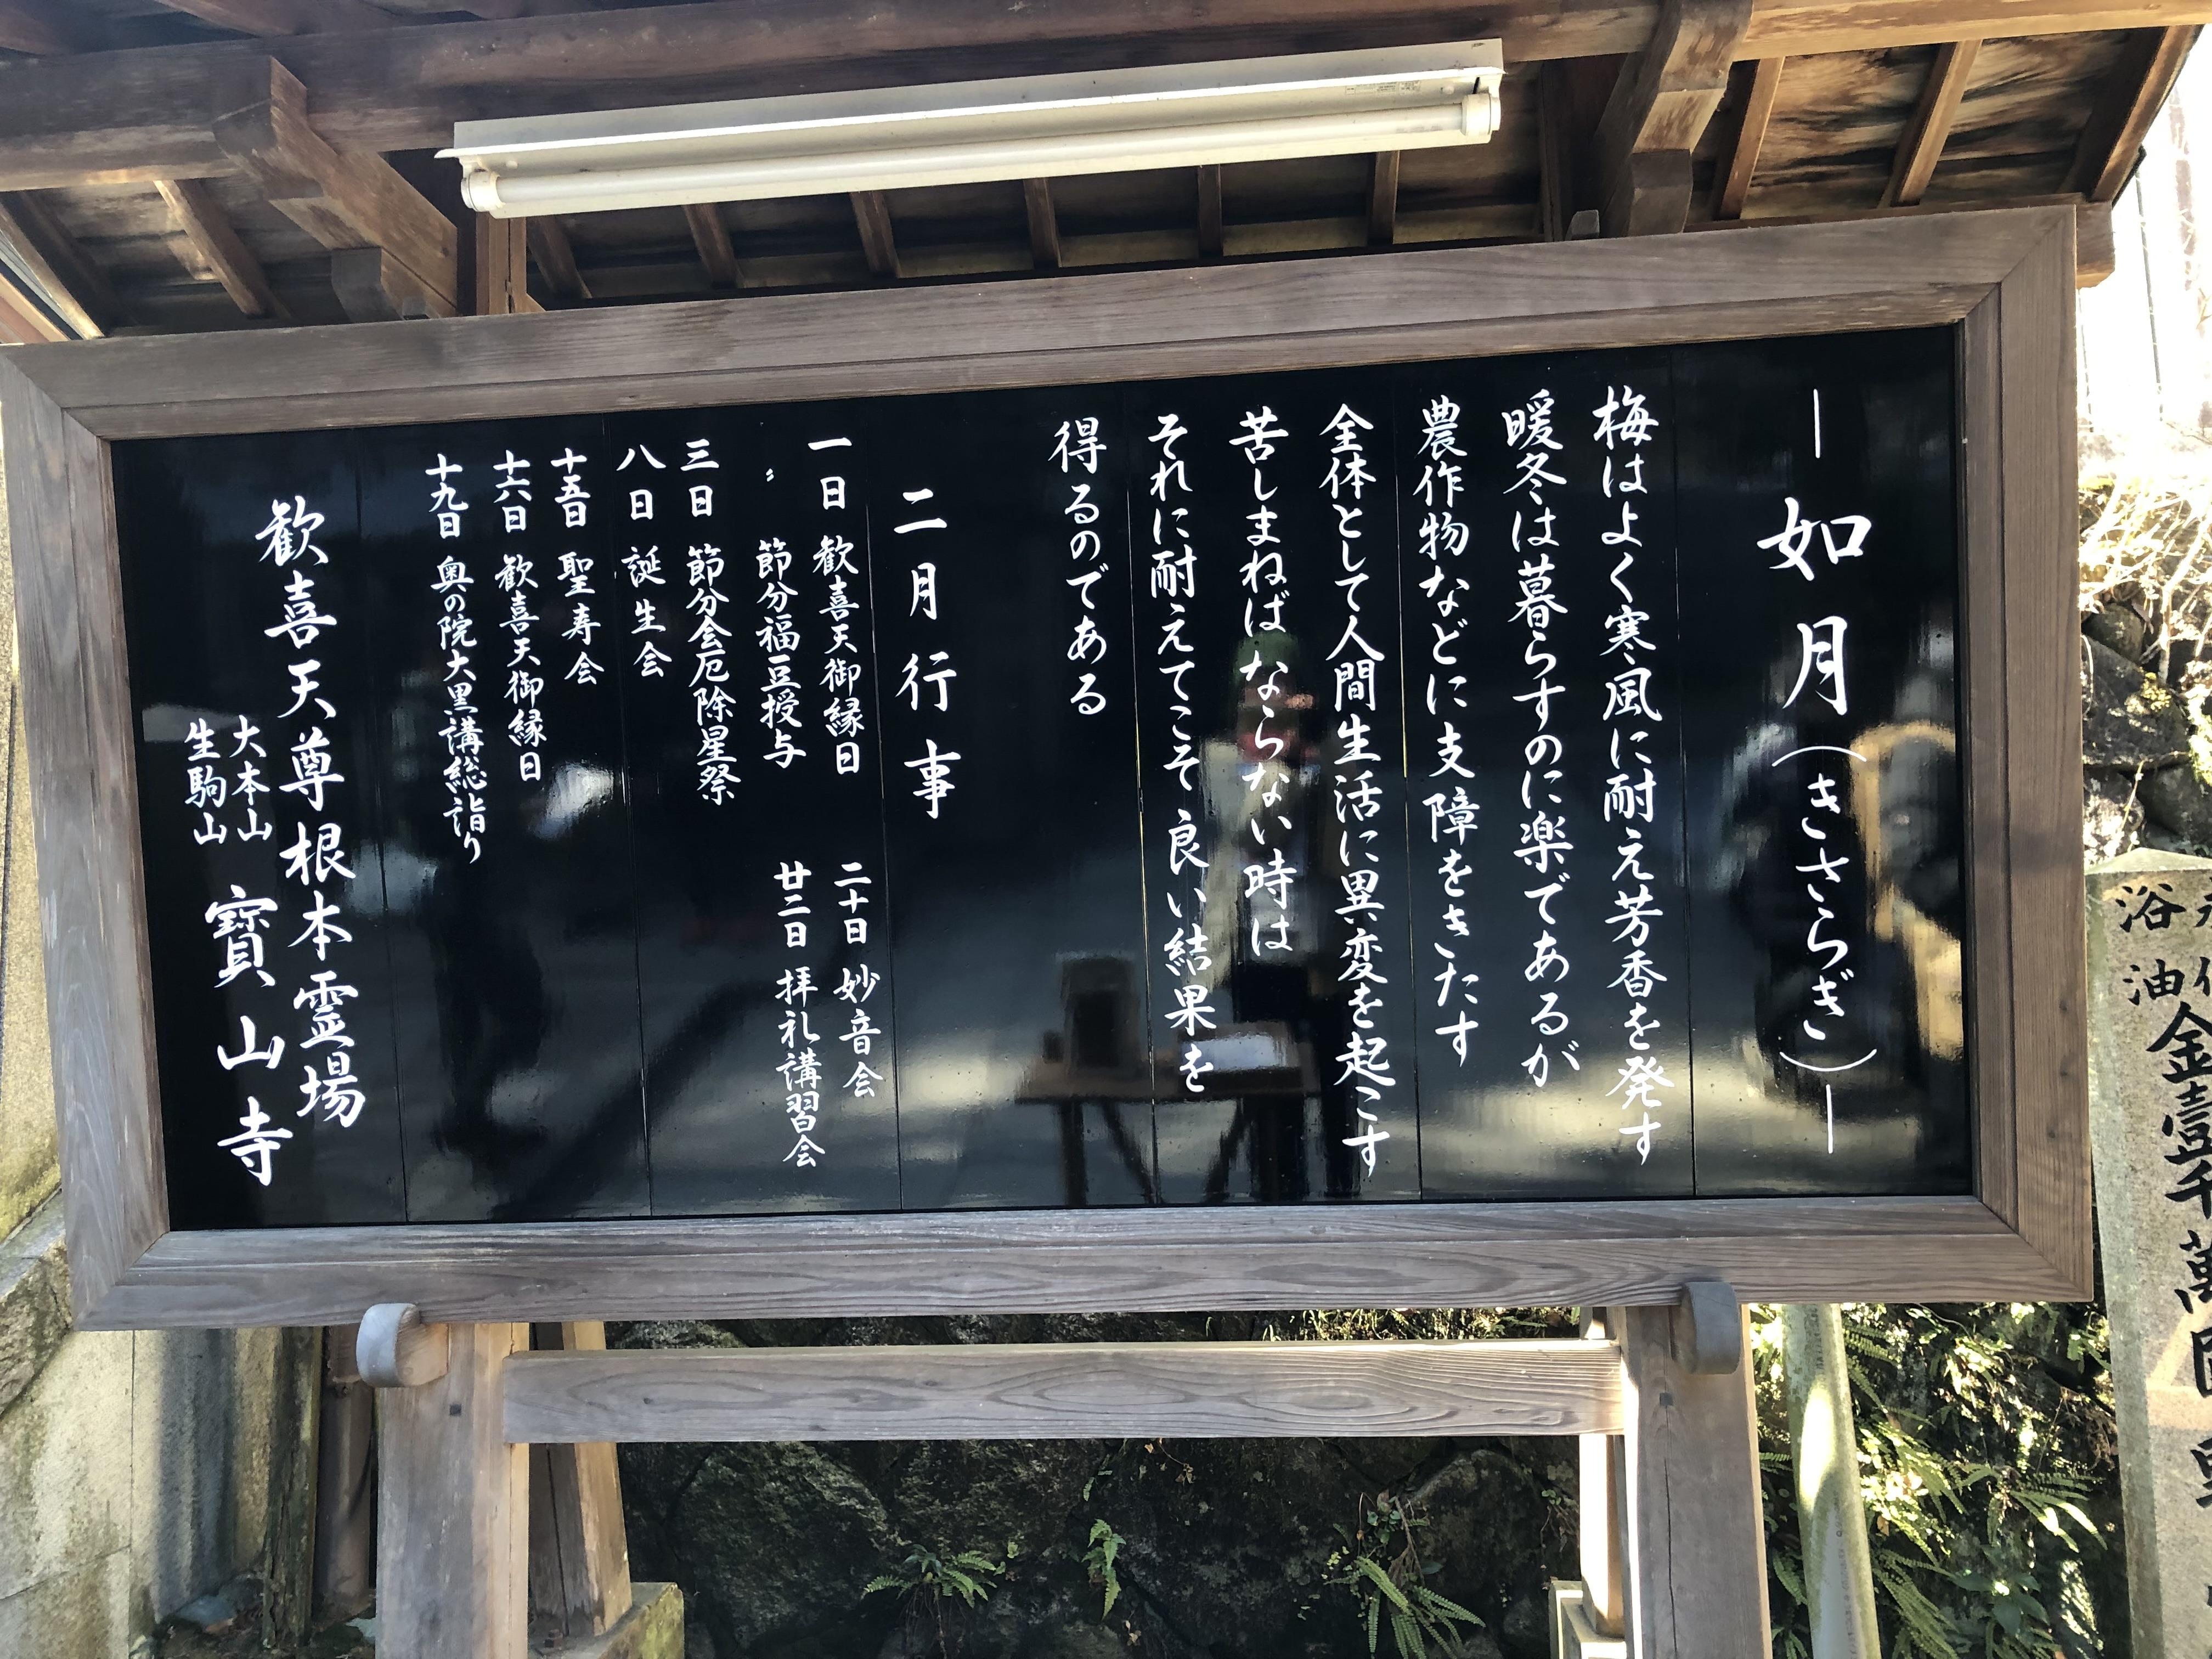 ―如月（きさらぎ）―
梅はよく寒風に耐え芳香を発す
暖冬は暮らすのに楽であるが
農作物などに支障をきたす
全体として人間生活に異変を起こす
苦しまねばならない時は
それに耐えてこそ良い結果を
得るのである
二月行事
一日 歓喜天御縁日
〃 節分福豆授与
三日 節分会厄除星祭
八日 誕生会
十五日 聖寿会
十六日 歓喜天御縁日
十九日 奥の院大黒講総詣り
二十日 妙音会
廿二日 拝礼講習会
歓喜天尊根本霊場
大本山
生駒山
寳山寺
浴油
金壹千萬